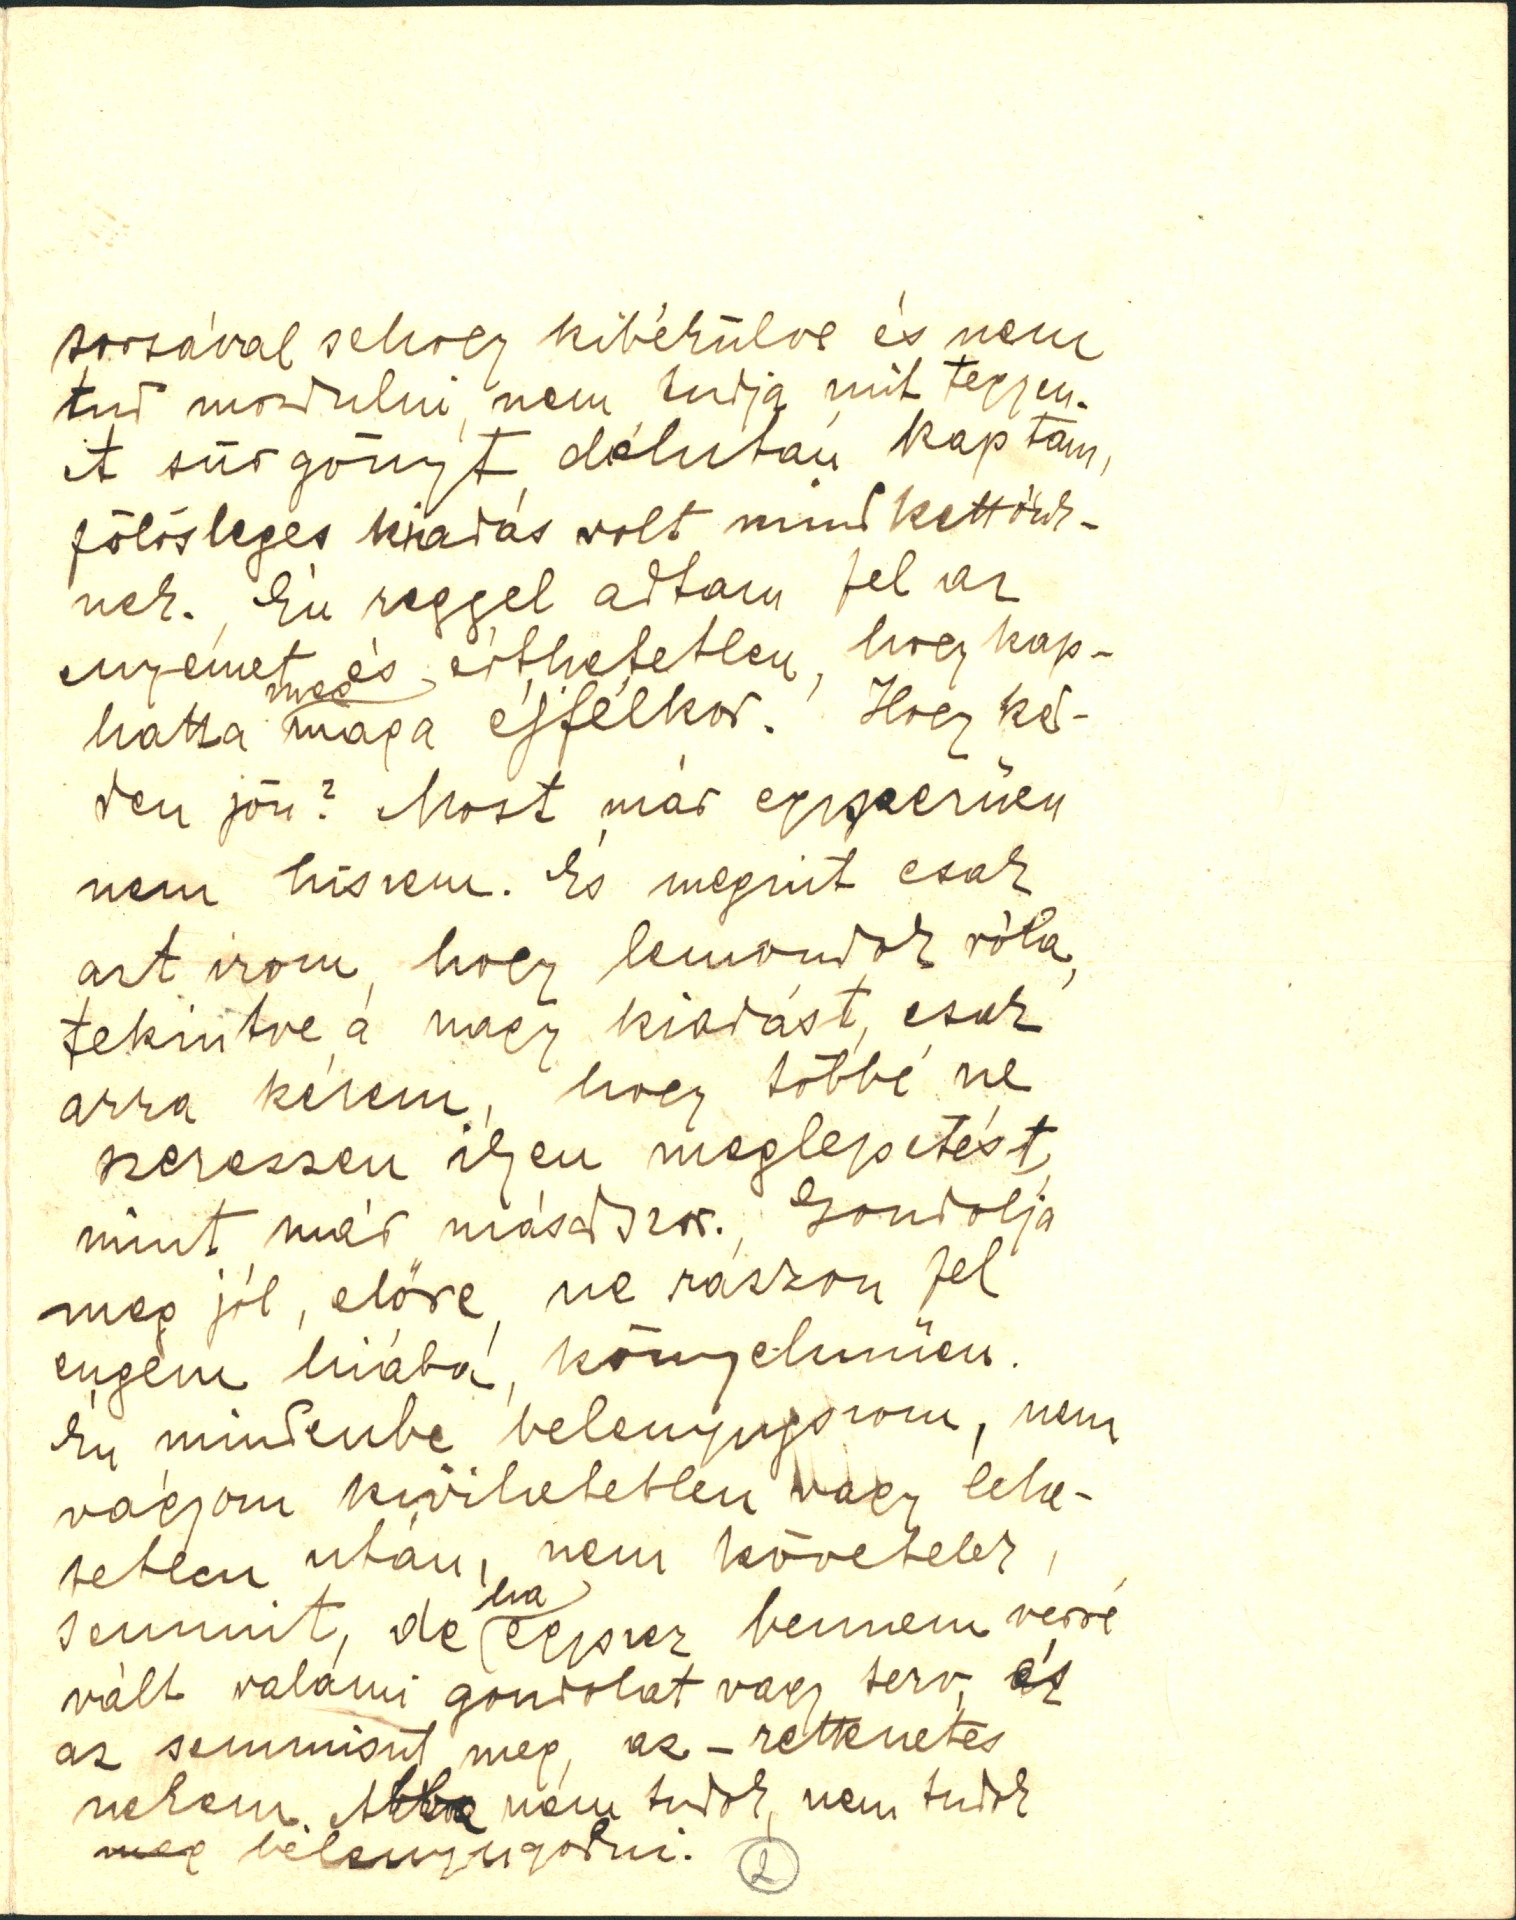 sorsával sehogy kibékülve és nem
tud mozdulni, nem tudja mit tegyen.
A sürgönyt délután kaptam,
fölösleges kiadás volt mindkettőnk-
nek. Én reggel adtam fel az
enyémet és érthetetlen, hogy kap-
hatta meg maga éjfélkor. Hogy ked-
den jön? Most már egyszerűen
nem hiszem. És megint csak
azt irom, hogy lemondok róla,
tekintve a nagy kiadást, csak
arra kérem, hogy többé ne
szerezzen ilyen meglepetést,
mint már másodszor. Gondolja
meg jól, előre, ne rázzon fel
engem hiába, könnyelmüen.
Én mindenbe belenyugszom, nem
vágyom kivihetetlen vagy lehe-
tetlen után, nem követelek
semmit, de ha egyszer bennem vérré
vált valami gondolat vagy terv, és
az semmisül meg, az – rettenetes
nekem. Abba nem tudok, nem tudok
meg belenyugodni.
2